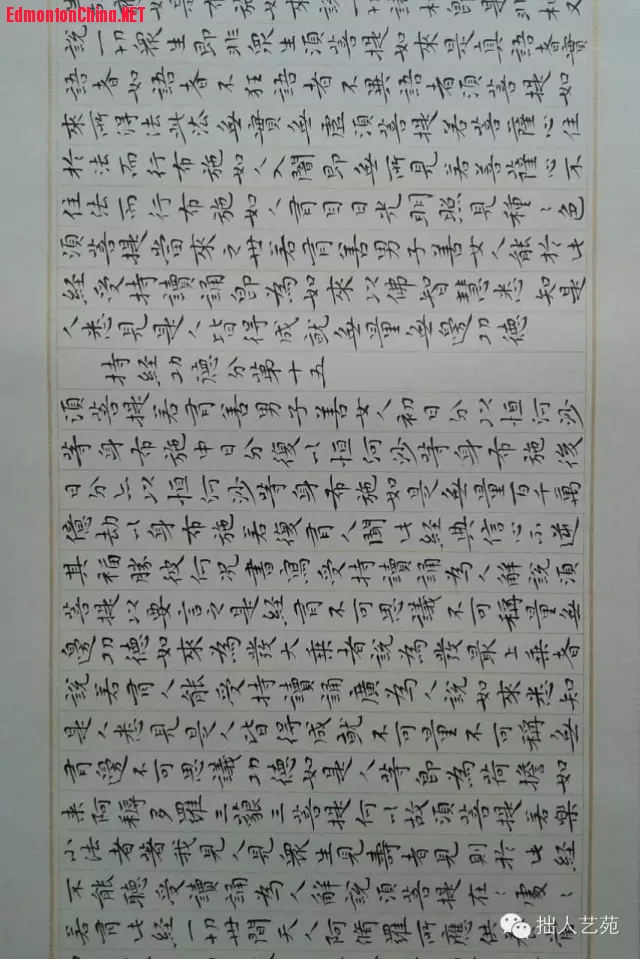 EdmontonChina.NET
說一切眾生即非眾生須菩提如來是真語者實
語者如語者不狂語者不異語者須菩提如
來所得法此法無實無虛須菩提若菩薩心住
於法而行布施如人入闇即無所見若菩薩心不
住法而行布施如人有目日光明照見種〻色
須菩提當來之世若有善男子善女人能於此
經受持讀誦即為如來以佛智慧悉知是
人悉見是人皆得成就無量無邊功德
持經功德分第十五
須菩提若有善男子善女人初日分以恒河沙
等身布施中日分復以恒河沙等身布施後
日分亦以恒河沙等身布施如是無量百千萬
億劫以身布施若復有人聞此經典信心不逆
其福勝彼何況書寫受持讀誦為人解說須
菩提以要言之是經有不可思議不可稱量無
邊功德如來為發大乘者說為發最上乘者
說若有人能受持讀誦廣為人說如來悉知
是人悉見是人皆得成就不可量不可稱無
有邊不可思議功德如是人等即為荷擔如
來阿耨多羅三藐三菩提何以故須菩提若樂
小法者著我見人見眾生見壽者見則於此經
不能聽受讀誦為人解說須菩提在〻處〻
若有此經一切世間天人阿脩羅所應供
拙人艺苑